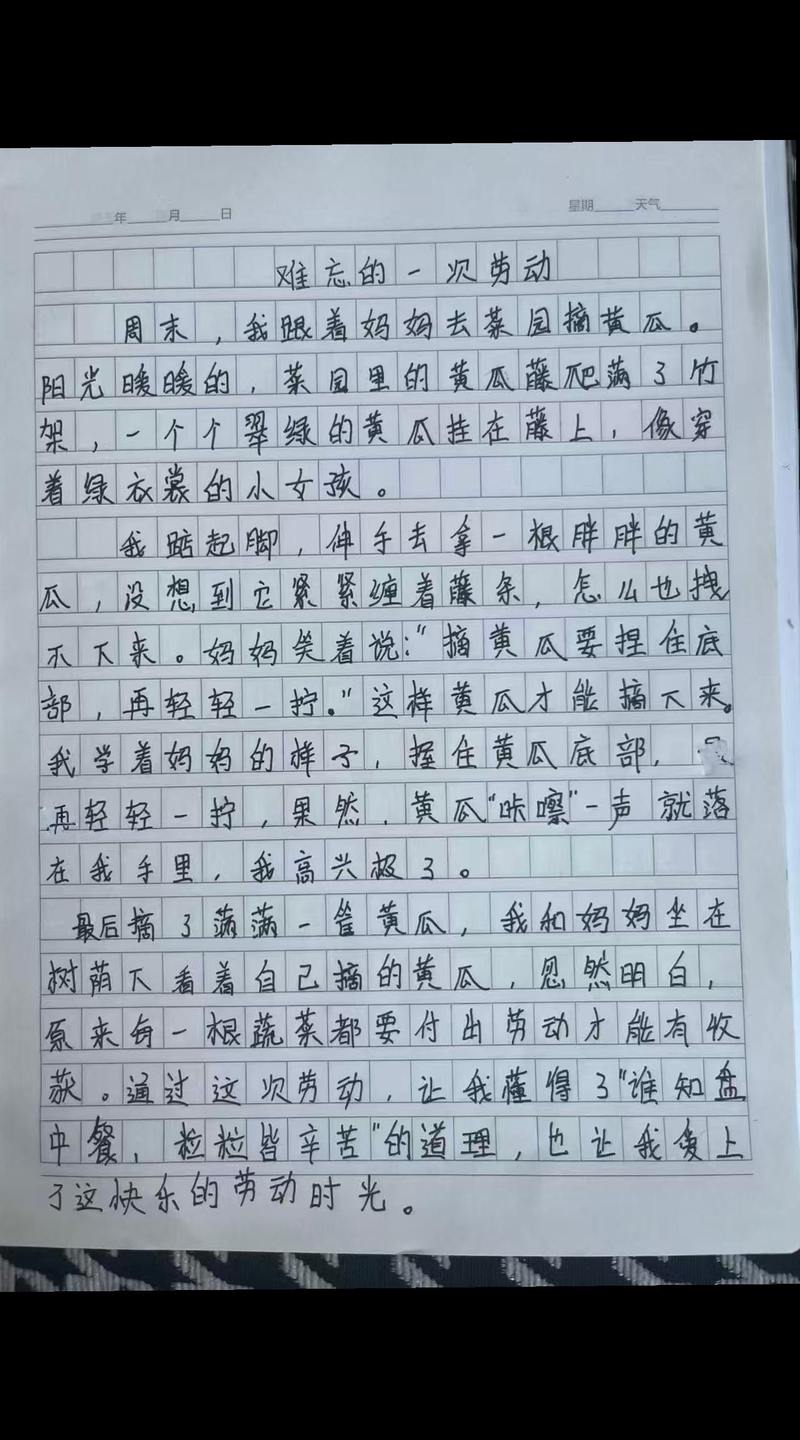 年 月 日 星期 天气
难忘的一次劳动
周末，我跟着妈妈去菜园摘黄瓜。
阳光暖暖的，菜园里的黄瓜藤爬满了竹
架，一个个翠绿的黄瓜挂在藤上，像穿
着绿衣裳的小女孩。
我踮起脚，伸手去拿一根胖胖的黄
瓜，没想到它紧紧缠着藤条，怎么也拽
不下来。妈妈笑着说：“摘黄瓜要捏住底
部，再轻轻一拧。”这样黄瓜才能摘下来。
我学着妈妈的样子，握住黄瓜底部，
再轻轻一拧，果然，黄瓜“咔嚓”一声就落
在我手里，我高兴极了。
最后摘了满满一筐黄瓜，我和妈妈坐在
树荫下看着自己摘的黄瓜，忽然明白，
原来每一根蔬菜都要付出劳动才能有收
获。通过这次劳动，让我懂得了“谁知盘
中餐，粒粒皆辛苦”的道理，也让我爱上
了这快乐的劳动时光。